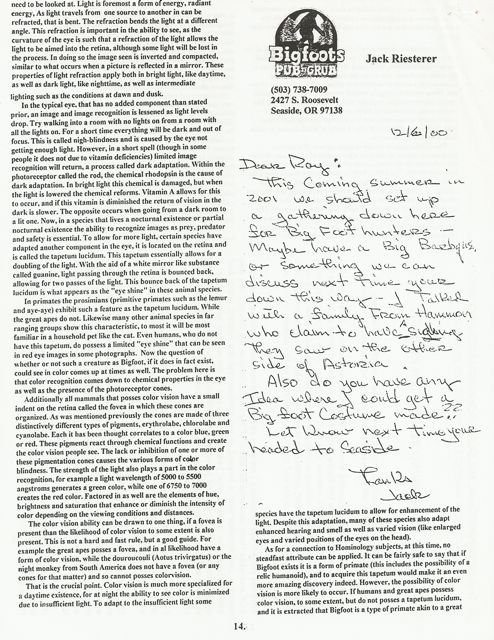 need to be looked at. Light is foremost a form of energy, radiant
energy, As light travels from one source to another in can be
refracted, that is bent. The refraction bends the light at a different
angle. This refraction is important in the ability to see, as the
curvature of the eye is such that a refraction of the light allows the
light to be aimed into the retina, although some light will be lost in
the process. In doing so the image seen is inverted and compacted,
similar to what occurs when a picture is reflected in a mirror. These
properties of light refraction apply both in bright light, like daytime,
as well as dark light, like nighttime, as well as intermediate
lighting such as the conditions at dawn and dusk.
In the typical eye, that has no added component than stated
prior, an image and image recognition is lessened as light levels
drop. Try walking into a room with no lights on from a room with
all the lights on. For a short time everything will be dark and out of
focus. This is called nigh-blindness and is caused by the eye not
getting enough light. However, in a short spell (though in some
people it does not due to vitamin deficiencies) limited image
recognition will return, a process called dark adaptation. Within the
photoreceptor called the rod, the chemical rhodopsin is the cause of
dark adaptation. In bright light this chemical is damaged, but when
the light is lowered the chemical reforms. Vitamin A allows for this
to occur, and if this vitamin is diminished the return of vision in the
dark is slower. The opposite occurs when going from a dark room to
a lit one. Now, in a species that lives a nocturnal existence or partial
nocturnal existence the ability to recognize images as prey, predator
and safety is essential. To allow for more light, certain species have
adapted another component in the eye, it is located on the retina and
is called the tapetum lucidum. This tapetum essentially allows for a
doubling of light. With the aid of a white mirror like substance
called guanine, light passing through the retina is bounced back,
allowing for two passes of the light. This bounce back of the tapetum
lucidum is what appears as the "eye shine" in these animal species.
In primates the prosimians (primitive primates such as the lemur
and aye-aye) exhibit such a feature as the tapetum lucidum. While
the great apes do not. Likewise many other animal species in far
ranging groups show this characteristic, to most it will be most
familiar in a household pet like the cat. Even humans, who do not
have this tapetum, do possess a limited "eye shine" that can be seen
in red eye images in some photographs. Now the question of
whether or not such a creature as Bigfoot, if it does in fact exist,
could see in color comes up at times as well. The problem here is
that color recognition comes down to chemical properties in the eye
as well as the presence of the photoreceptor cones.
Additionally all mammals that posses color vision have a small
indent on the retina called the fovea in which these cones are
organized. As was mentioned previously the cones are made of three
distinctively different types of pigments, erythrolabe, chlorolabe and
cyanolabe. Each it has been thought correlates to a color blue, green
or red. These pigments react through chemical functions and create
the color vision people see. The lack or inhibition of one or more of
these pigmentation cones causes the various forms of color
blindness. The strength of the light also plays a part in the color
recognition, for example a light wavelength of 5000 to 5500
angstroms generates a green color, while one of 6750 to 7000
creates the red color. Factored in as well are the elements of hue,
brightness and saturation that enhance or diminish the intensity of
color depending on the viewing conditions and distances.
The color vision ability can be drawn to one thing, if a fovea is
present than the likelihood of color vision to some extent is also
present. This is not a hard and fast rule, but a good guide. For
example the great apes posses a fovea, and in al likelihood have a
form of color vision, while the douroucouli (Aotus trivirgatus) or the
night monkey from South America does not have a fovea (or any
cones for that matter) and so cannot posses colorvision.
That is the crucial point. Color vision is much more specialized for
a daytime existence, for at night the ability to see color is minimized
due to insufficient light. To adapt to the insufficient light some
Bigfoots
PUB 'n' GRUB
Jack Riesterer
(503) 738-7009
2427 S. Roosevelt
Seaside, OR 97138
12/6/00
Dear Ray:
This Coming summer in
2001 we should set up
a gathering down here
for Big Foot hunters -
Maybe have a Big Barbqis
or something we can
discuss next time your
down this way - I Talked
with a family From Hammon
who claim to have a sighting
They saw on the other
side of Astoria.
Also do you have any
Idea where I could get a
Big foot Costume made??
Let Know next time you
headed to Seaside.
Thanks
Jack
species have the tapetum lucidum to allow for enhancement of the
light. Despite this adaptation, many of these species also adapt
enhanced hearing and smell as well as varied vision (like enlarged
eyes and varied positions of the eyes on the head).
As for a connection to Hominology subjects, at this time, no
steadfast attribute can be applied. It can be fairly safe to say that if
Bigfoot exists it is a form of primate (this includes the possibility of a
relic humanoid), and to acquire this tapetum would make it an even
more amazing discovery indeed. However, the possibility of color
vision is more likely to occur. If humans and great apes possess
color vision, to some extent, but do not posses a tapetum lucidum,
and it is extracted that Bigfoot is a type of primate akin to a great
14.